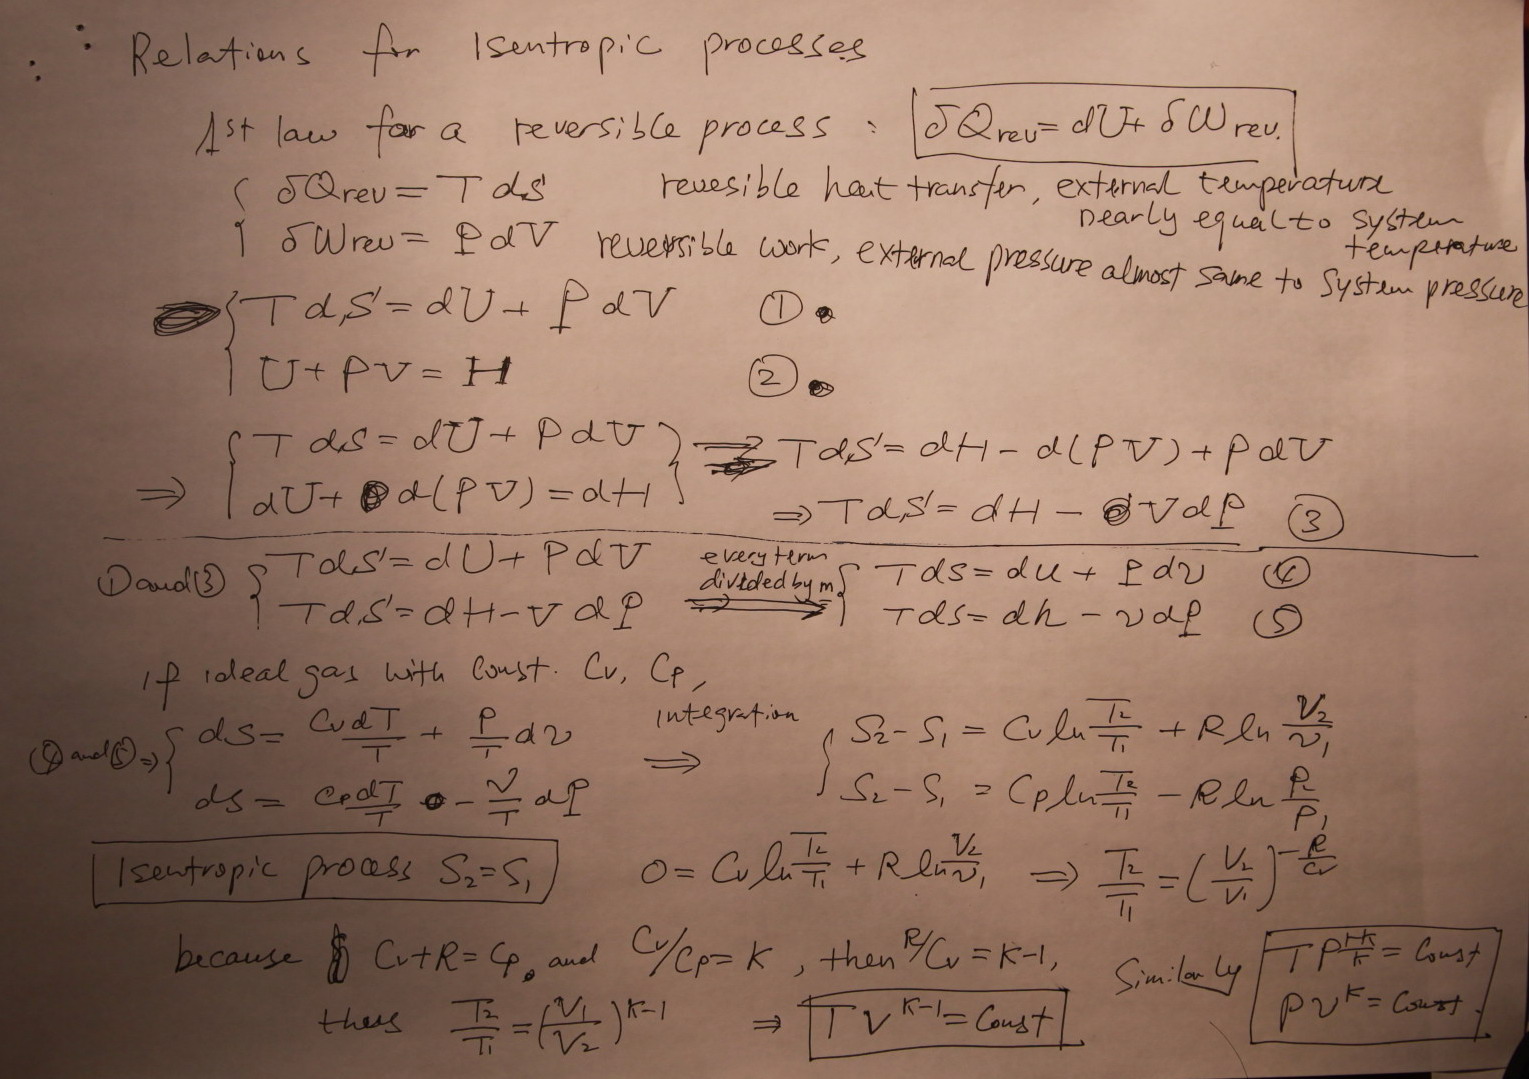 Relations for Isentropic processes
1st law for a reversible process : δQrev = dU + δWrev.
δQrev = T dS revesible heat transfer, external temperature
nearly equal to system
temperature
δWrev = P dV reversible work, external pressure almost same to System pressure
T dS = dU + P dV ①
U + PV = H ②
T dS = dU + P dV ⇒ T dS = dH - d(PV) + P dV
⇒ dU + d(PV) = dH ⇒ T dS = dH - V dP ③
① and ③ T dS = dU + P dV every term T ds = du + P dv ④
divided by m
T dS = dH - V dP ⇒ T ds = dh - v dP ⑤
if ideal gas with Const. Cv, Cp,
④ and ⑤ ⇒ ds = CvdT/T + P/T dv integration ⇒ S2 - S1 = Cv ln T2/T1 + R ln V2/v1
ds = CpdT/T - V/T dP S2 - S1 = Cp ln T2/T1 - R ln P2/P1
Isentropic process S2 = S1 0 = Cv ln T2/T1 + R ln V2/v1 ⇒ T2/T1 = (V2/V1)^-R/Cv
because Cv + R = Cp, and Cv/Cp = K, then R/Cv = K-1,
Similarly T P^(1-K)/K = Const
thus T2/T1 = (V1/V2)^K-1 ⇒ T V^K-1 = Const P v^K = Const.